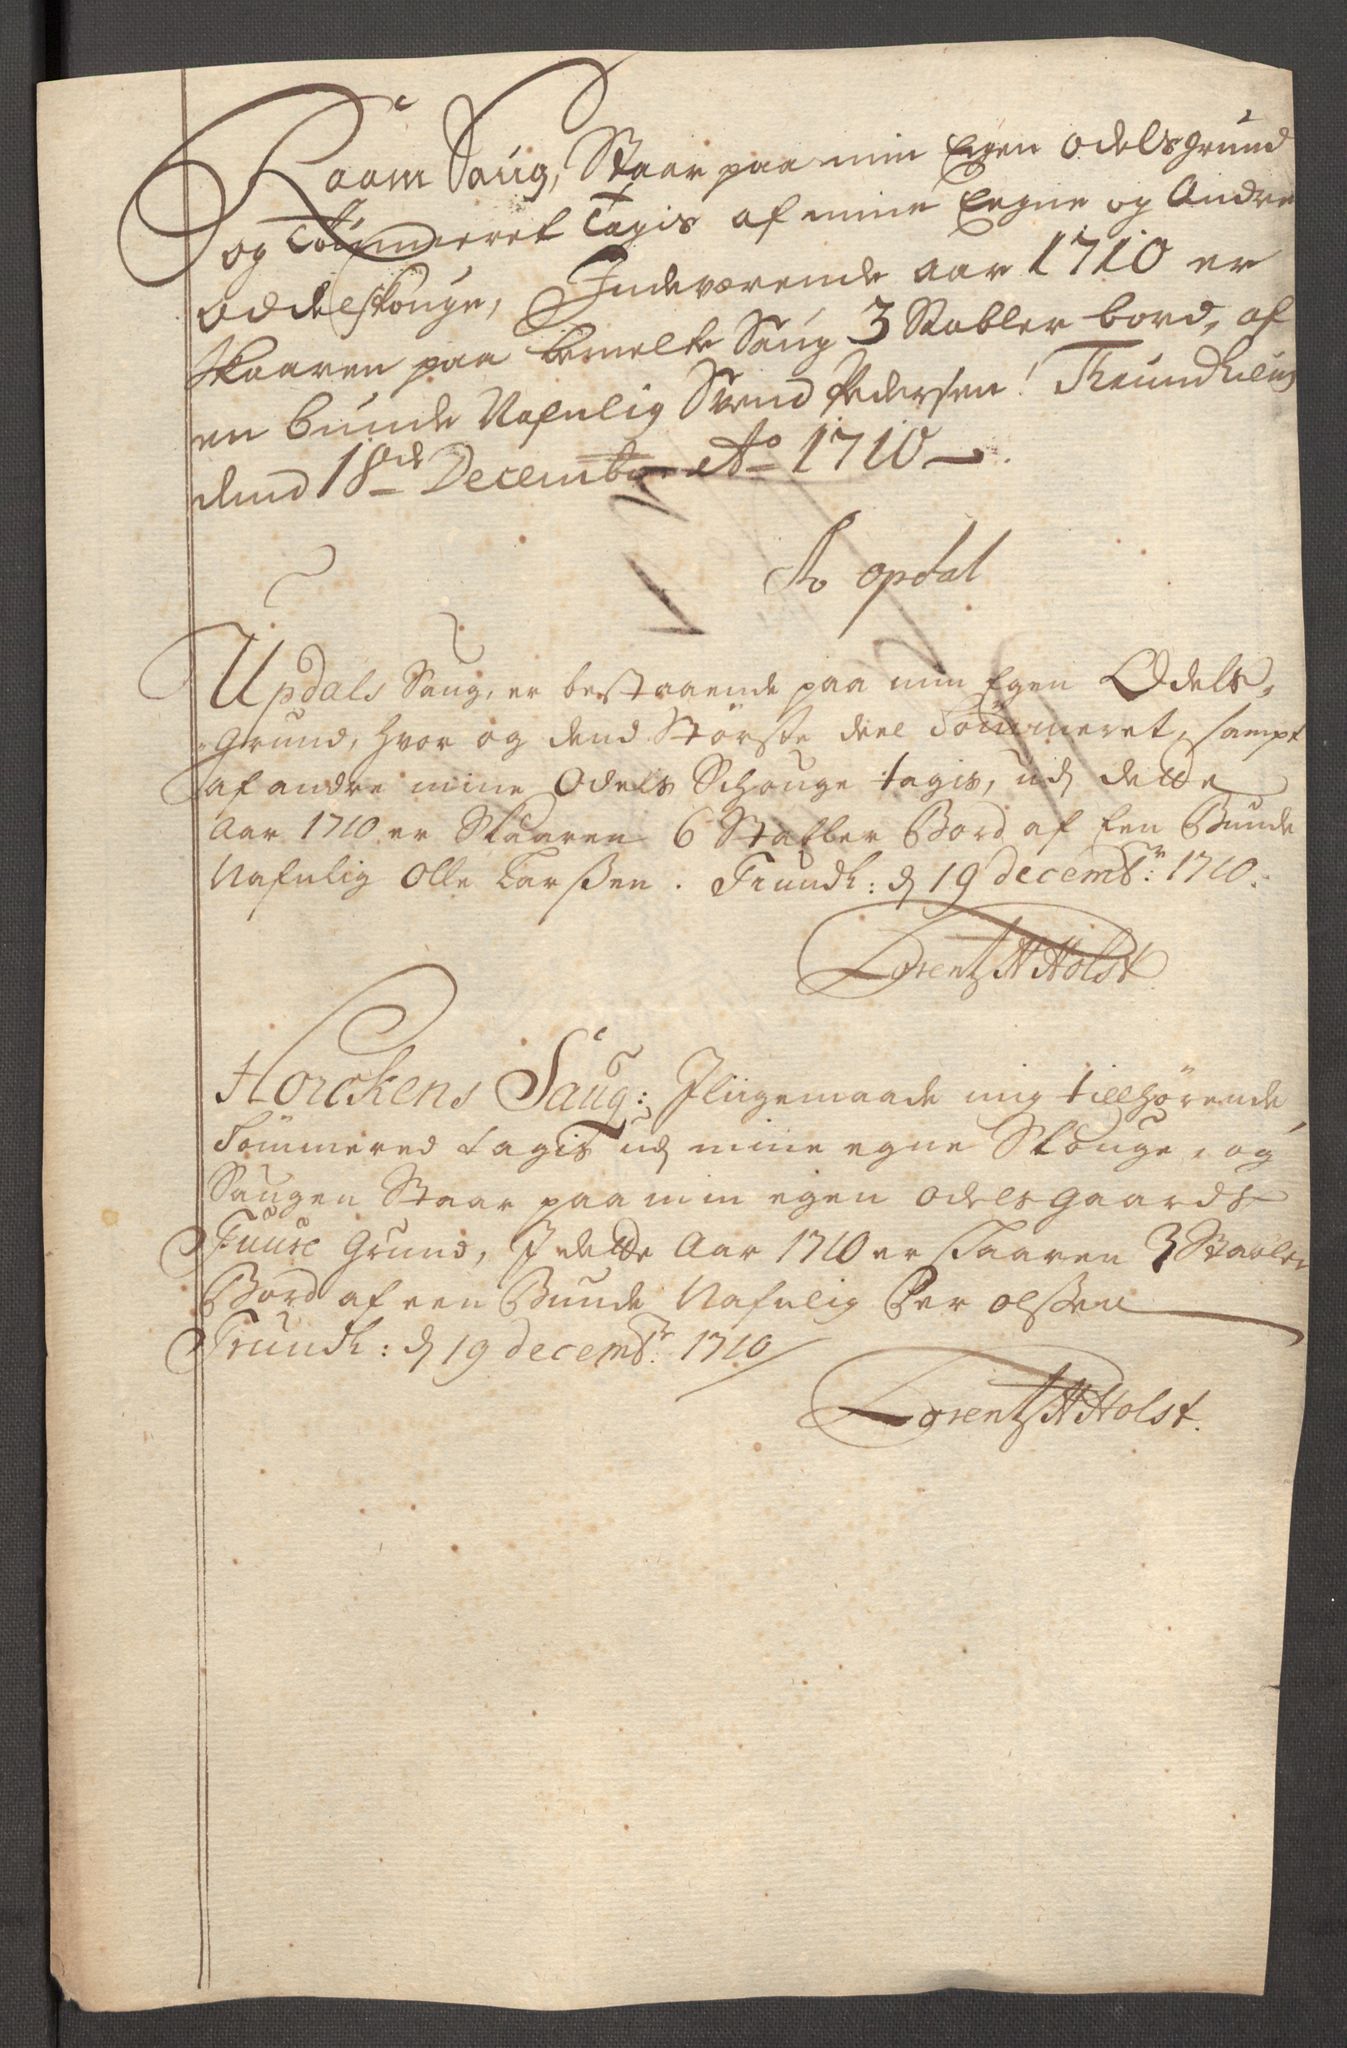 Raam Saug, Staar paa min Egen odelsgrund
og Tømmeret Tagis af mine Eegne og Andre
oddelskouge, Indeværende aar 1710 er
skaaren paa bemelte Saug 3 Stabler bord, af
en bunde Nafnlig Svend Pedersen!
dend 18de December Ao 1710
opdal
Updals Saug, er bestaaende paa min Egen Odels,
Grund, hvor og dend Störste deel Tömmeret, sampt
af andre mine Odels Schouge tagis, udj dette
Aar 1710 er Skaaren 6 Stabler Bord af Een Bunde
Nafnlig Olle Larssen. Trundh: d 19 decembr: 1710.
Lorentz M Holst
Horckens Saug: Jligemaade mig tillhörende
Tömmered tagis udj mine egne Skouge, og
Saugen Staar paa min egen odelsgaards
Fuure Grund, J dette Aar 1710 er skaaren 3 Stabler
Bord af een Bunde Nafnlig Per olssen
Trundh: d 19 decembr: 1710
Lorentz M Holst.